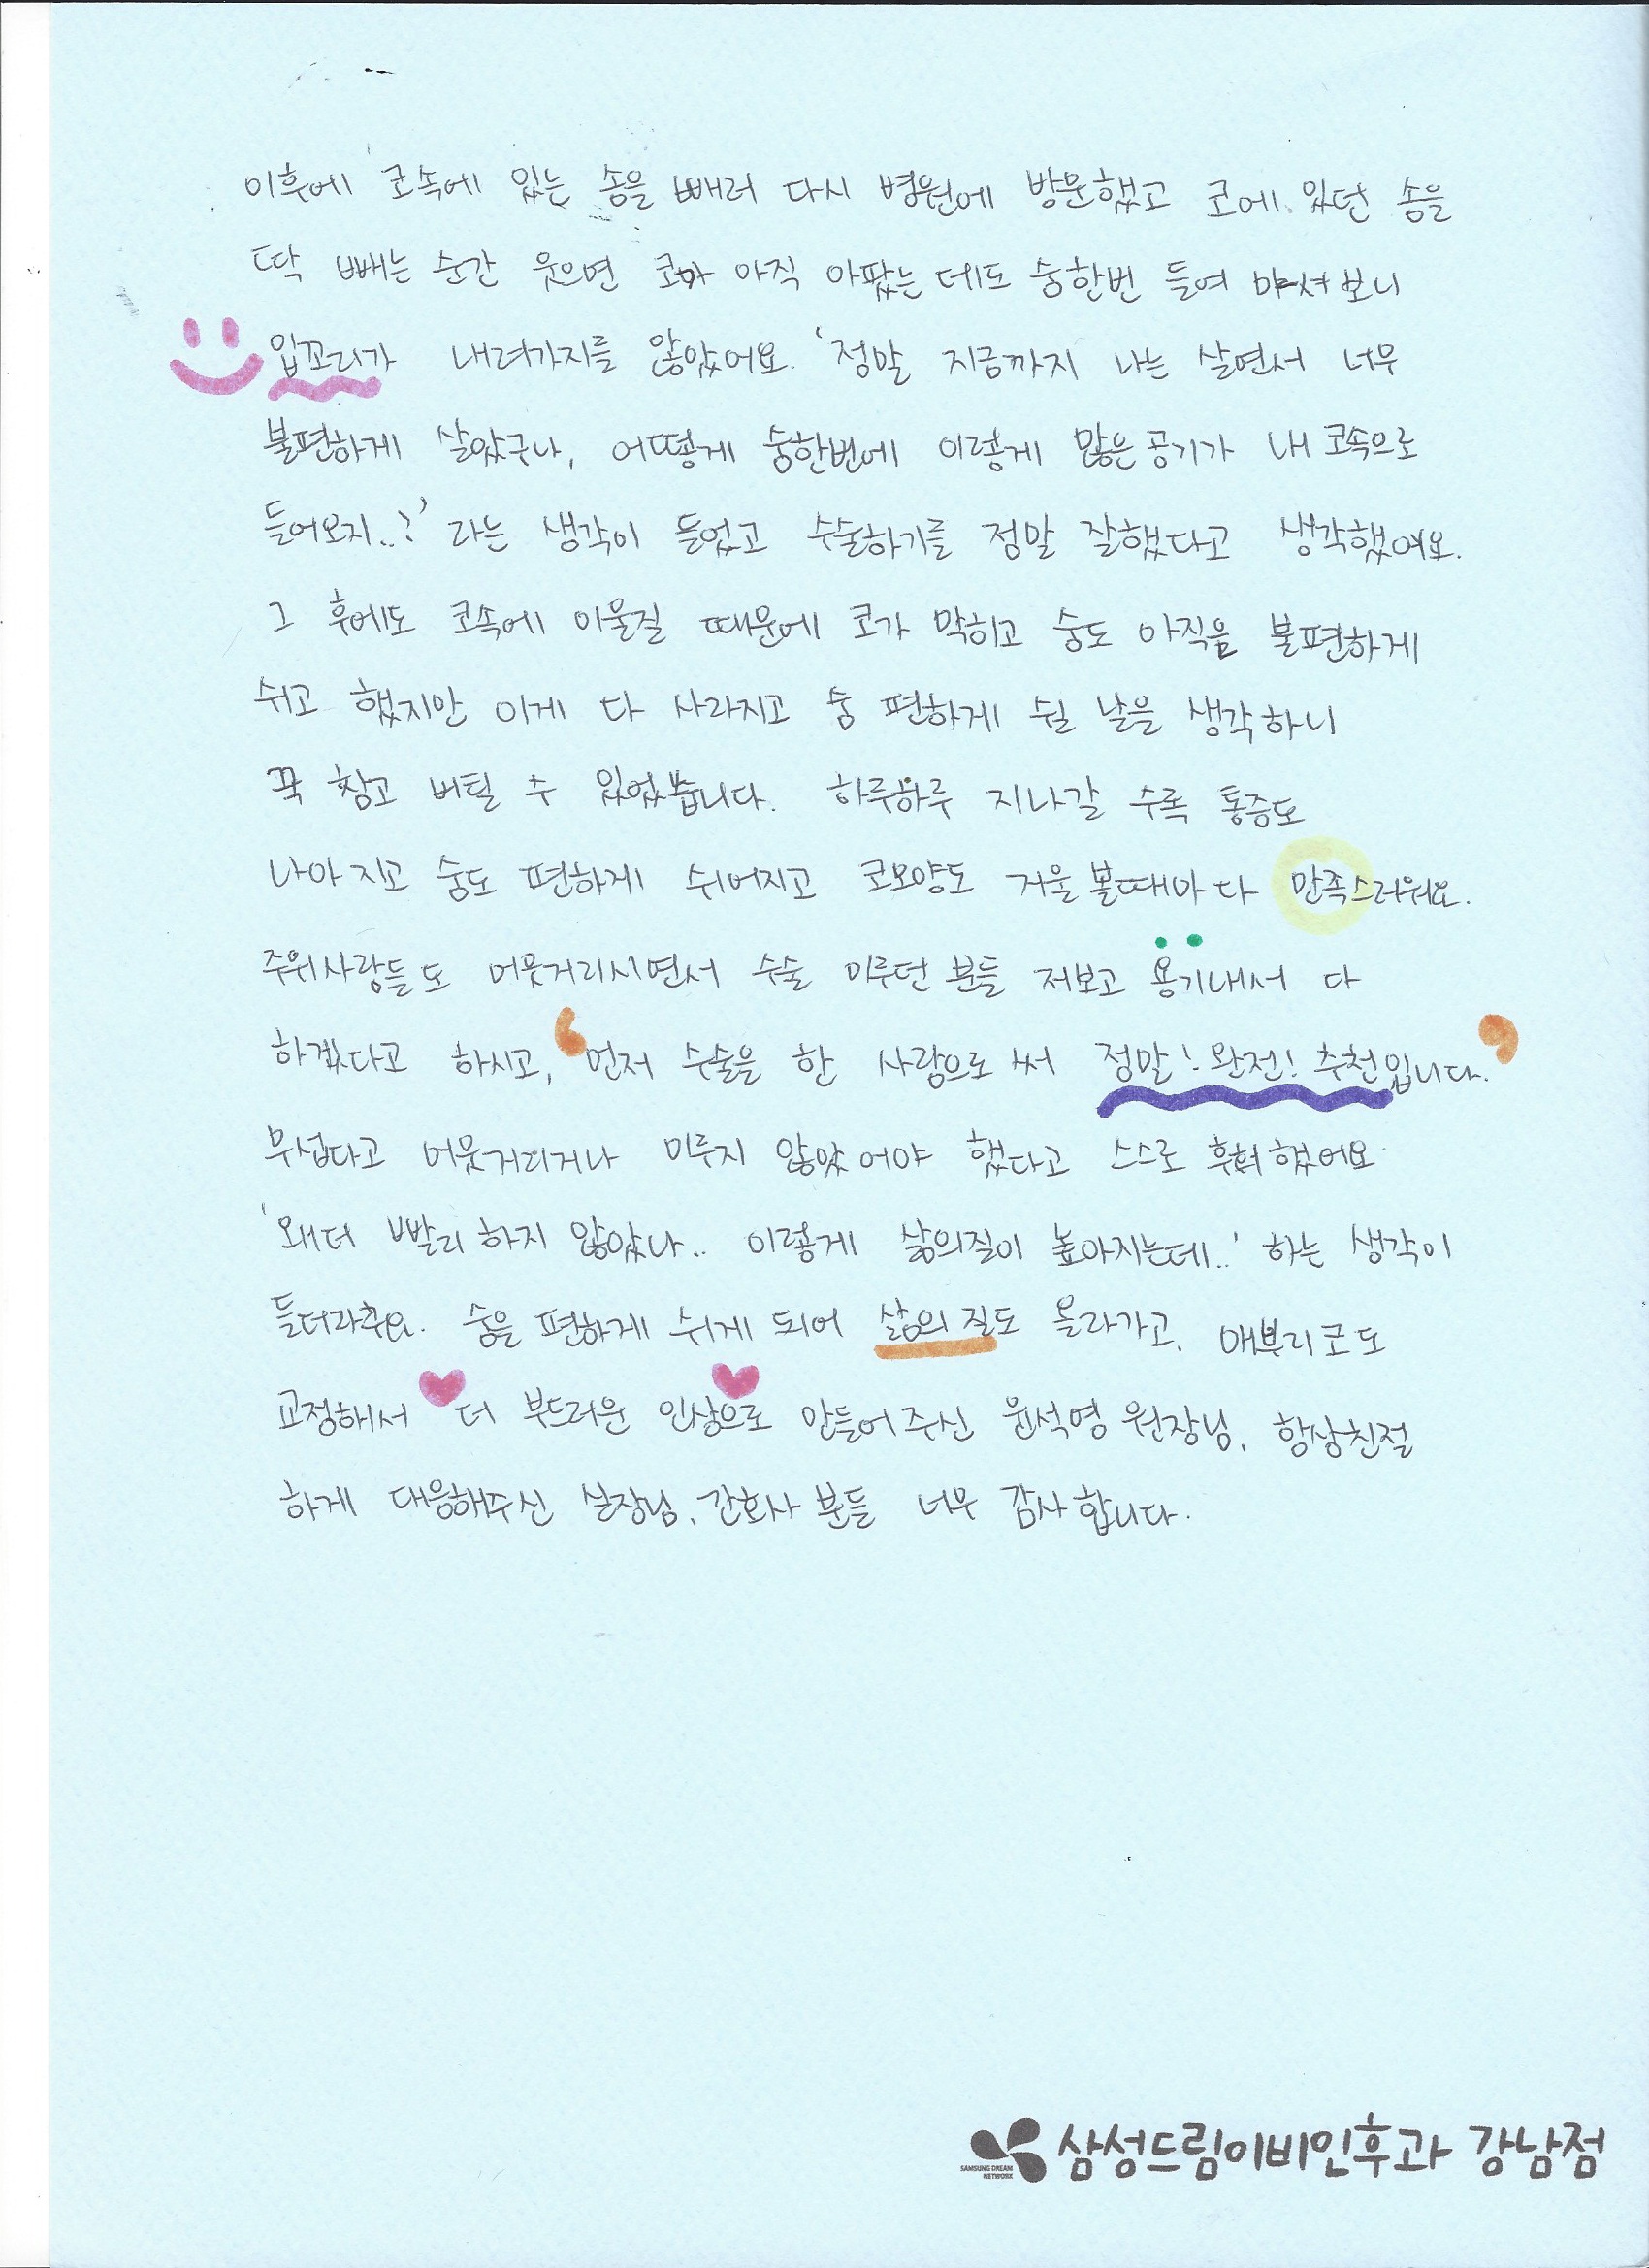 이후에 코속에 있는 솜을 빼러 다시 병원에 방문했고 코에 있던 솜을
딱 빼는 순간 웃으면 코가 아직 아팠는데도 숨한번 들여 마셔보니
입꼬리가 내려가지를 않았어요. '정말 지금까지 나는 살면서 너무
불편하게 살았구나, 어떻게 숨한번에 이렇게 많은 공기가 내 코속으로
들어오지..?' 라는 생각이 들었고 수술하기를 정말 잘했다고 생각했어요.
그 후에도 코속에 이물질 때문에 코가 막히고 숨도 아직은 불편하게
쉬고 했지만 이게 다 사라지고 숨 편하게 쉴 날을 생각하니
꾹 참고 버틸 수 있었습니다. 하루하루 지나갈 수록 통증도
나아지고 숨도 편하게 쉬어지고 코모양도 거울볼때마다 만족스러워요.
주위사람들도 머뭇거리시면서 수술 미루던 분들 저보고 용기내서 다
하겠다고 하시고, '먼저 수술을 한 사람으로써 정말! 완전! 추천입니다.'
무섭다고 머뭇거리거나 미루지 않았어야 했다고 스스로 후회했어요.
'왜더 빨리하지 않았나.. 이렇게 삶의질이 높아지는데..' 하는 생각이
들더라구요. 숨을 편하게 쉬게 되어 삶의 질도 올라가고, 매부리코도
교정해서 더 부드러운 인상으로 만들어주신 윤석영 원장님, 항상친절
하게 대응해주신 실장님, 간호사 분들 너무 감사합니다.
SAMSUNG DREAM NETWORK 삼성드림이비인후과 강남점